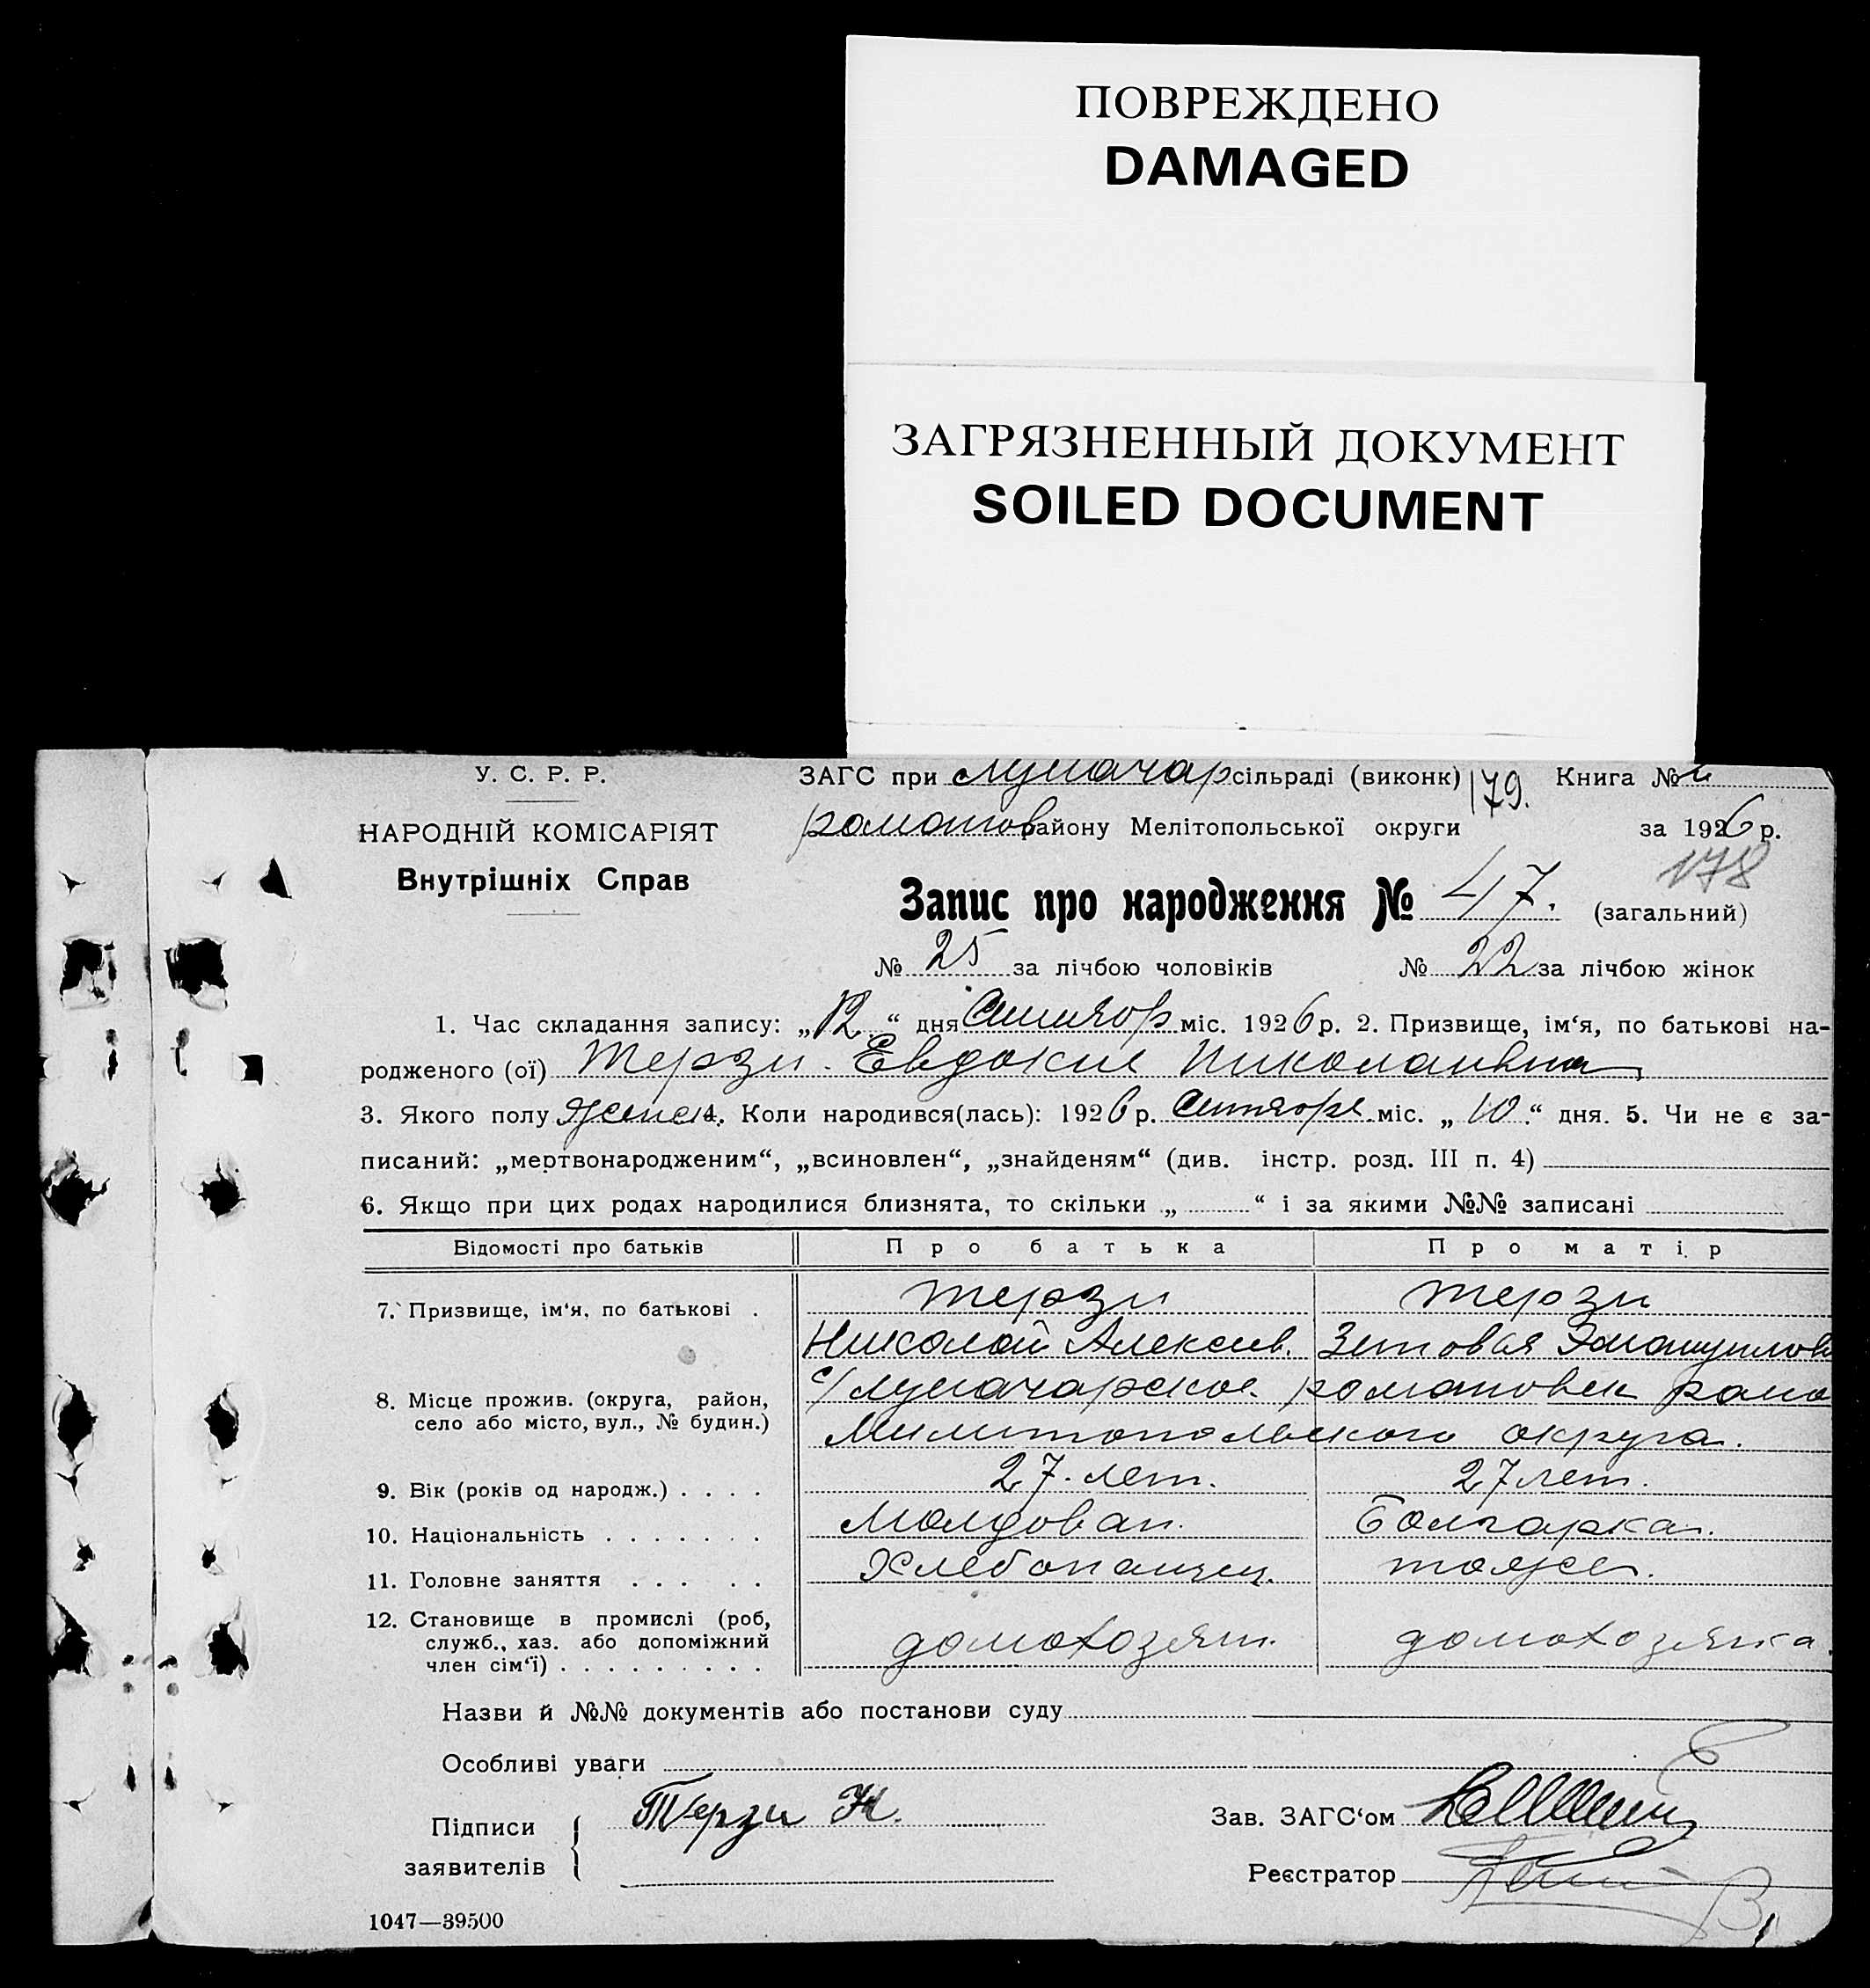 ПОВРЕЖДЕНО
DAMAGED
ЗАГРЯЗНЕННЫЙ ДОКУМЕНТ
SOILED DOCUMENT
У. С. Р. Р.
НАРОДНІЙ КОМІСАРІЯТ
Внутрішніх Справ
ЗАГС при Луначар сільраді (виконк) 179. Книга №
романов району Мелітопольської округи за 1926 р.
178
Запис про народження № 47. (загальний)
№ 25 за лічбою чоловіків № 22 за лічбою жінок
1. Час складання запису: „12“ дня Сентябр міс. 1926 р. 2. Призвище, ім‘я, по батькові на-
родженого (ої) Терзи Евдокие Николаивна
3. Якого полу женск 4. Коли народився(лась): 1926 р. Сентябре міс. „10“ дня. 5. Чи не є за-
писаний: „мертвонародженим“, „всиновлен“, „знайденям“ (див. інстр. розд. III п. 4)
6. Якщо при цих родах народилися близнята, то скільки „ “ і за якими №№ записані
Відомості про батьків Про батька Про матір
7. Призвище, ім‘я, по батькові . Терзи Терзи
Николай Алексеев.
8. Місце прожив. (округа, район, село або місто, вул., № будин.) с/Луначарское. романовск рано
Милитопольского округа.
9. Вік (років од народж.) . . . . 27. лет. 27 лет.
10. Національність . . . . . . . Молдован. Болгарка.
11. Головне заняття . . . . . Хлебопашец. тоже.
12. Становище в промислі (роб, служб., хаз. або допоміжний член сім‘ї) . . . . . . . . . домохозяин. домохозяика.
Назви й №№ документів або постанови суду
Особливі уваги
Підписи заявителів Терзи Н.
Зав. ЗАГС‘ом
Реєстратор
1047—39500